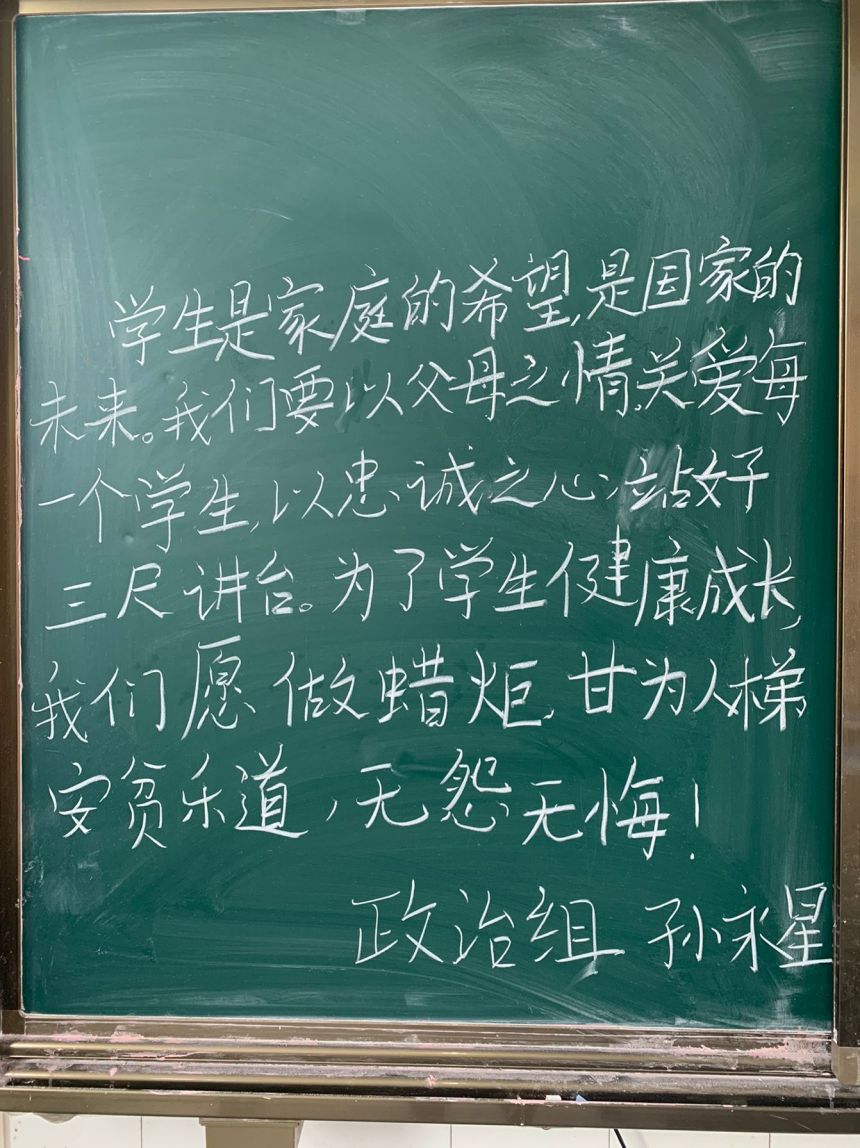 学生是家庭的希望,是国家的
未来。我们要以父母之情,关爱每
一个学生,以忠诚之心,站好
三尺讲台。为了学生健康成长,
我们愿做蜡炬,甘为人梯
安贫乐道,无怨无悔!
政治组 孙永星